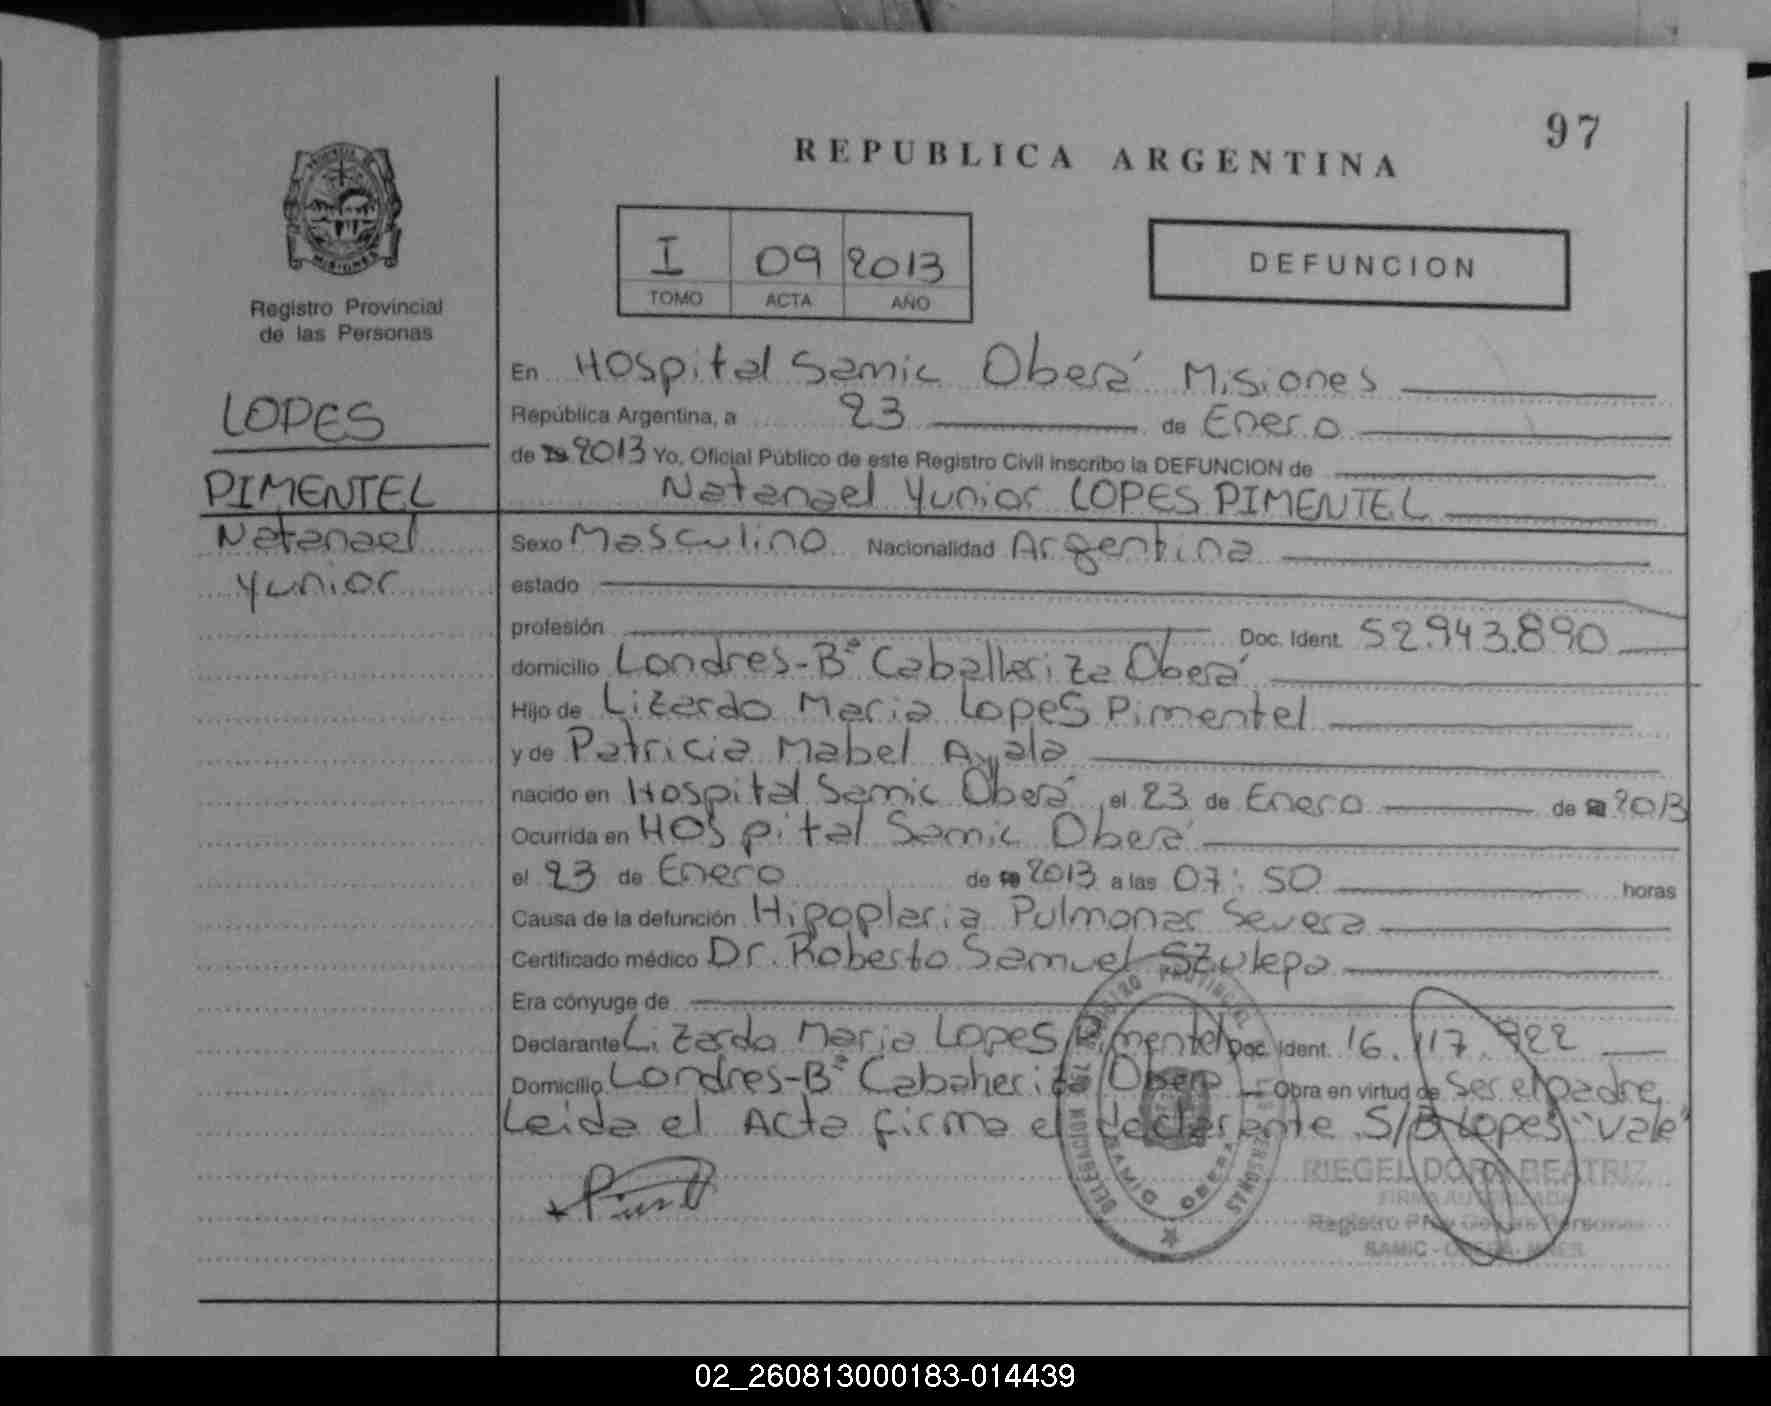 97
REPUBLICA ARGENTINA
I 09 2013
TOMO ACTA AÑO
DEFUNCION
MISIONES
Registro Provincial
de las Personas
LOPES
PIMENTEL
Natanael
Yunior
En Hospital Samic Oberá Misiones
República Argentina, a 23 de Enero
de 2013 Yo, Oficial Público de este Registro Civil inscribo la DEFUNCION de
Natanael Yunior LOPES PIMENTEL
Sexo Masculino Nacionalidad Argentina
estado
profesión Doc. Ident. 52.943.890
domicilio Londres-Bº Caballeriza Oberá
Hijo de Lizardo Maria Lopes Pimentel
y de Patricia Mabel Ayala
nacido en Hospital Samic Oberá, el 23 de Enero de 2013
Ocurrida en Hospital Samic Oberá
el 23 de Enero de 2013 a las 07:50 horas
Causa de la defunción Hipoplaria Pulmonar Severa
Certificado médico Dr. Roberto Samuel Szulepa
Era cónyuge de
Declarante Lizardo Maria Lopes Pimentel Doc. Ident. 16.117.922
Domicilio Londres-Bº Caballeriza Oberá Obra en virtud de Ser el padre
Leida el Acta firma el declarante S/B Lopes "vale"
RIEGEL DORA BEATRIZ
FIRMA AUTORIZADA
Registro Prov. de las Personas
SAMIC - OBERA - MNES.
02_260813000183-014439